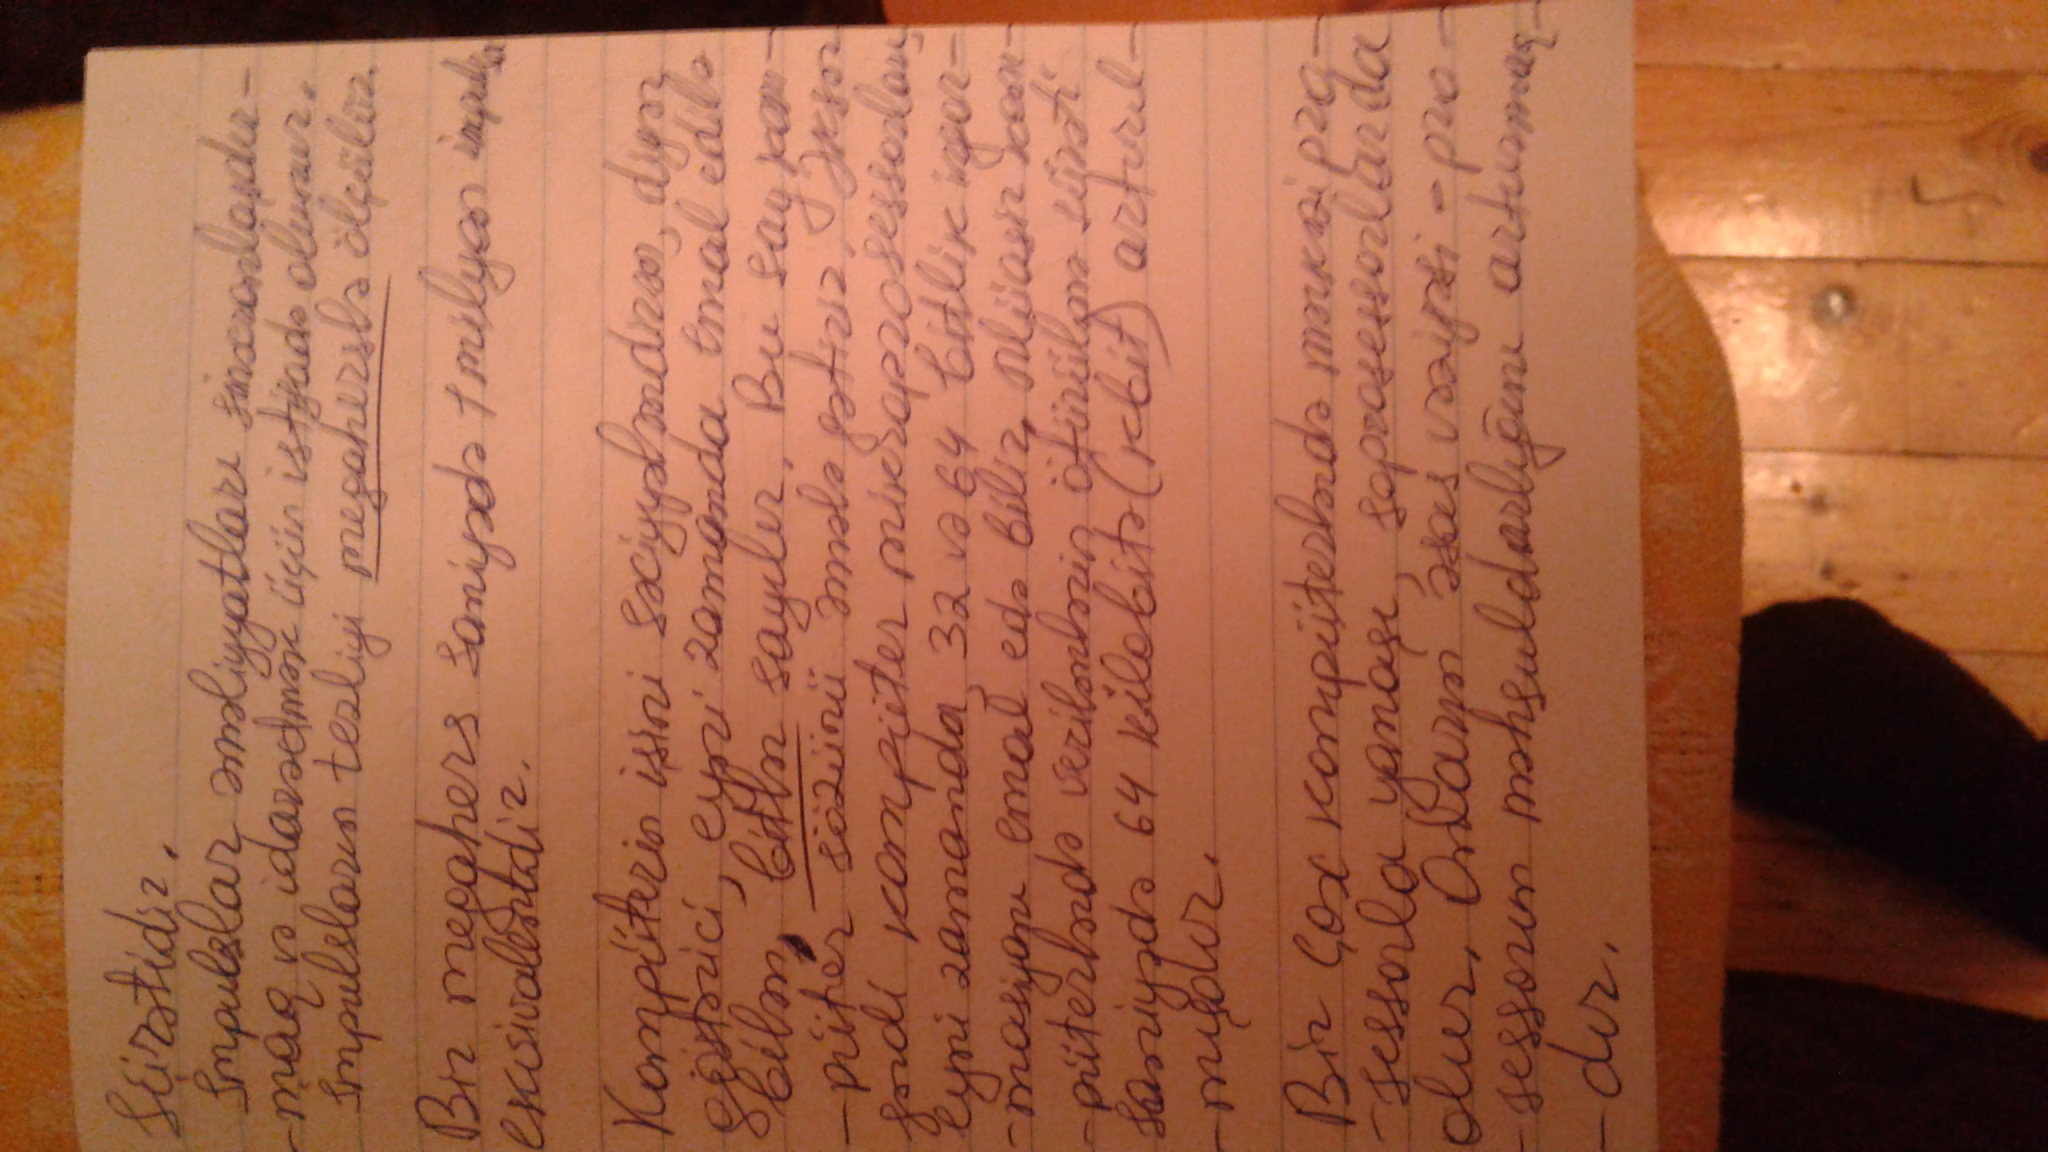 sürətidir.
İmpulslar əməliyyatları sinxronlaşdır-
-maq və idarəetmək üçün istifadə olunur.
İmpulsların tezliyi megaherslə ölçülür.
Bir megahers saniyədə 1 milyon impulsa
ekvivalentdir.
Kompüterin işini səciyyələndirən, digər
göstərici, eyni zamanda emal edilə
bilən, bitlər sayıdır. Bu say kom-
-püter sözünü əmələ gətirir. Əksər
fərdi kompüter mikroprosessorları,
eyni zamanda, 32 və 64 bitlik infor-
-masiyanı emal edə bilir. Müasir kom-
-püterlərdə verilənlərin ötürülmə sürəti
saniyədə 64 kilobitə (kbit) artırıl-
-mışdır.
Bir çox kompüterlərdə mərkəzi pro-
-sessorla yanaşı, soprosessorlarda
olur. Onların əsas vəzifəsi - pro-
-sessorun məhsuldarlığını artırmaq-
-dır.